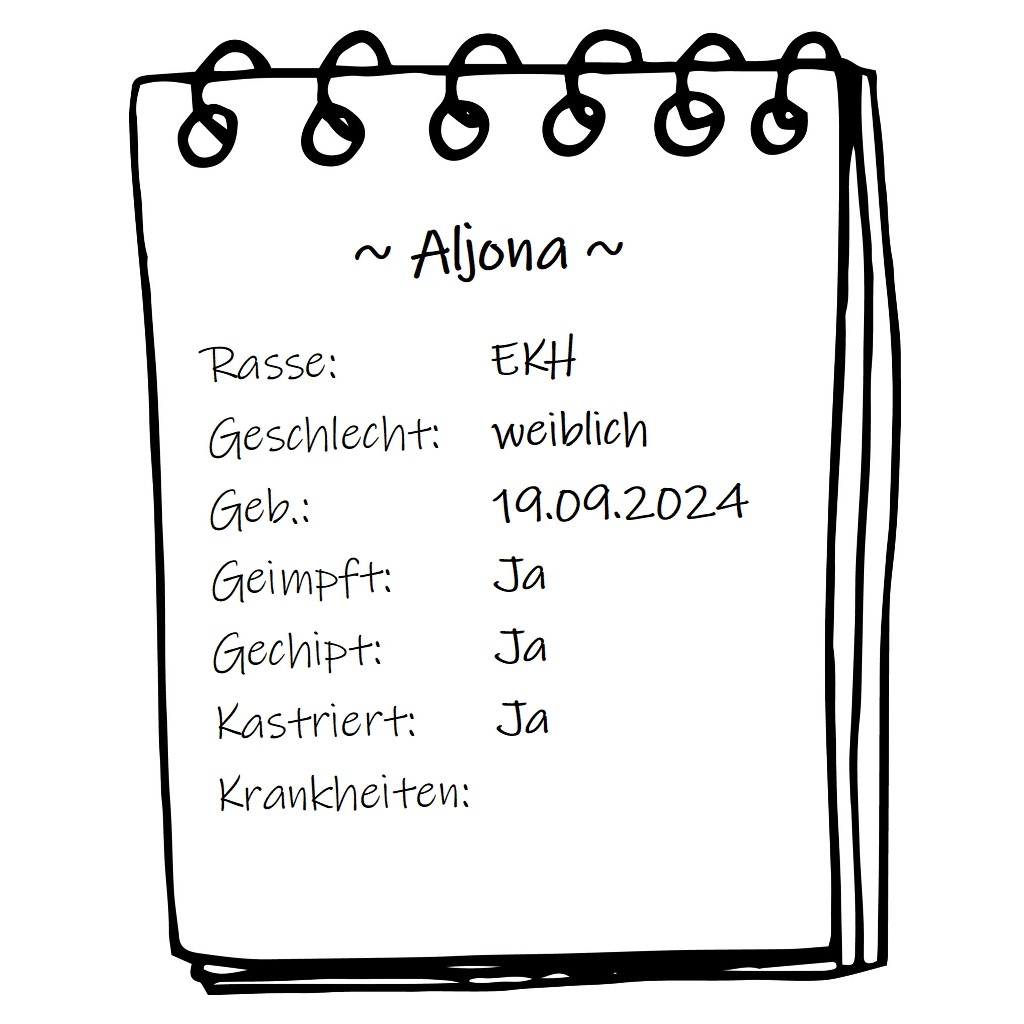 ~ Aljona ~
Rasse: EKH
Geschlecht: weiblich
Geb.: 19.09.2024
Geimpft: Ja
Gechipt: Ja
Kastriert: Ja
Krankheiten: